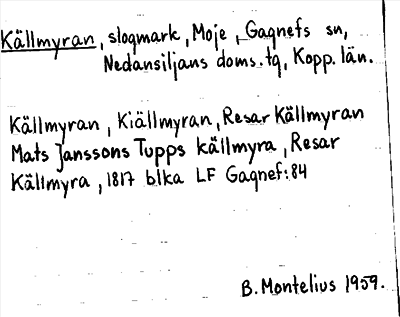 Källmyran, slogmark, Moje, Gagnefs sn,
Nedansiljans doms. tg, Kopp. län.
Källmyran, Kiällmyran, Resar Källmyran
Mats Janssons Tupps källmyra, Resar
Källmyra, 1817 blka LF Gagnef: 84
B. Montelius 1959.